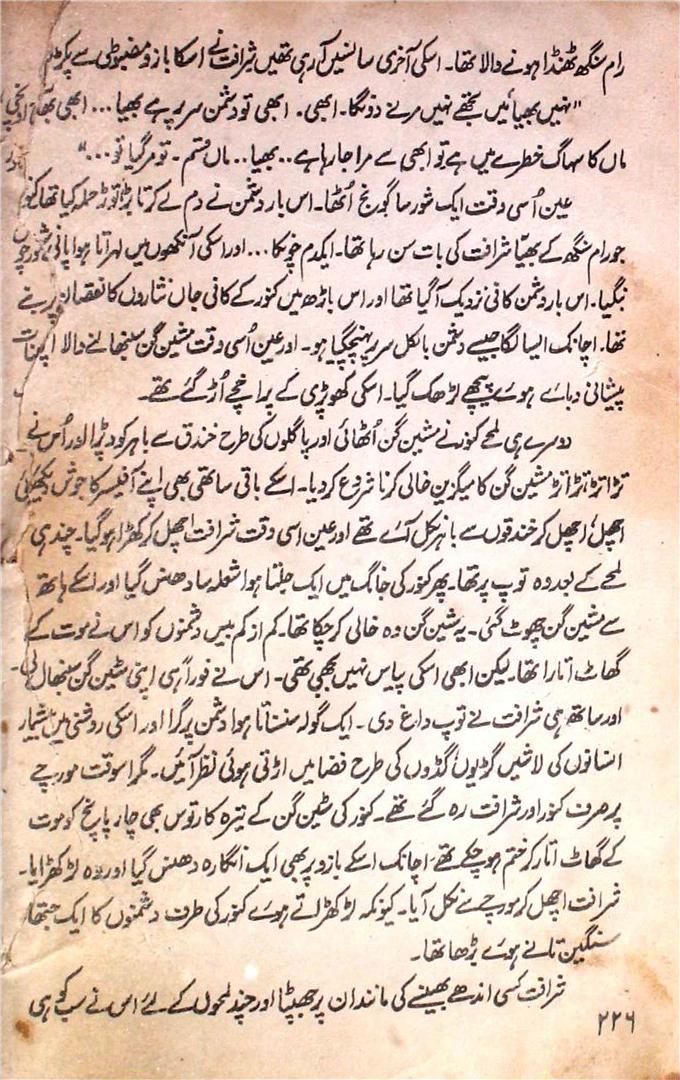 رام سنگھ ٹھنڈا ہونے والا تھا۔ اسکی آخری سانسیں آ رہی تھیں شرافت نے اسکا بازو مضبوطی سے پکڑ
"نہیں بھیا ئیں تجھے نہیں مرنے دونگا۔ ابھی۔ ابھی تو دشمن سر پر ہے بھیا... ابھی بھارت
ماں کا سہاگ خطرے میں ہے تو ابھی سے مرا جا رہا ہے.. بھیا.. ماں قسم۔ تو مر گیا تو..."
عین اُسی وقت ایک شور سا گونج اُٹھا۔ اس بار دشمن نے دم لے کر تابڑ توڑ حملہ کیا تھا کنور
جو رام سنگھ کے بھیّا شرافت کی بات سن رہا تھا۔ ایکدم چونکا... اور اسکی آنکھوں میں لہراتا ہوا پانی
بنگیا۔ اس بار دشمن کافی نزدیک آ گیا تھا اور اس باڑھ میں کنور کے کافی جاں نثاروں کا نقصان
تھا۔ اچانک ایسا لگا جیسے دشمن بالکل سر پر پہنچ گیا ہو۔ اور عین اُسی وقت مشین گن سنبھالنے والا
پیشانی دبائے ہوئے پیچھے لڑھک گیا۔ اسکی کھوپڑی کے پراخچے اُڑ گئے تھے۔
دوسرے ہی لمحے کنور نے مشین گن اُٹھائی اور پاگلوں کی طرح خندق سے باہر کود پڑا اور اُس نے
تڑا تڑ تڑا تڑ مشین گن کا میگزین خالی کرنا شروع کر دیا۔ اسکے باقی ساتھی بھی اپنے آفیسر کا جوش دیکھکر
اچھل اچھل کر خندقوں سے باہر نکل آئے تھے اور عین اسی وقت شرافت اچھل کر کھڑا ہو گیا۔ چند ہی
لمحے کے بعد وہ توپ پر تھا۔ پھر کنور کی جانگ میں ایک جلتا ہوا شعلہ سا دھنس گیا اور اسکے ہاتھ
سے مشین گن چھوٹ گئی۔ یہ مشین گن وہ خالی کر چکا تھا۔ کم از کم بیس دشمنوں کو اس نے موت کے
گھاٹ اتارا تھا۔ لیکن ابھی اسکی پیاس نہیں بجھی تھی۔ اس نے فوراً ہی اپنی سٹین گن سنبھال لی۔
اور ساتھ ہی شرافت نے توپ داغ دی۔ ایک گولہ سنسناتا ہوا دشمن پر گرا اور اسکی روشنی میں بیشمار
انسانوں کی لاشیں گڑیوں گڈوں کی طرح فضا میں اڑتی ہوئی نظر آئیں۔ مگر اسوقت مورچے
پر صرف کنور اور شرافت رہ گئے تھے۔ کنور کی سٹین گن کے تیرہ کارتوس بھی چار پانچ کو موت
کے گھاٹ اتار کر ختم ہو چکے تھے، اچانک اسکے بازو پر بھی ایک انگارہ دھنس گیا اور وہ لڑکھڑایا۔
شرافت اچھل کر مورچے سے نکل آیا۔ کیونکہ لڑکھڑاتے ہوئے کنور کی طرف دشمنوں کا ایک جتھا
سنگین تانے ہوئے بڑھا تھا۔
شرافت کسی اندھے بھینسے کی مانند ان پر جھپٹا اور چند لمحوں کے لئے اس نے سب کو ہی
۲۲۶